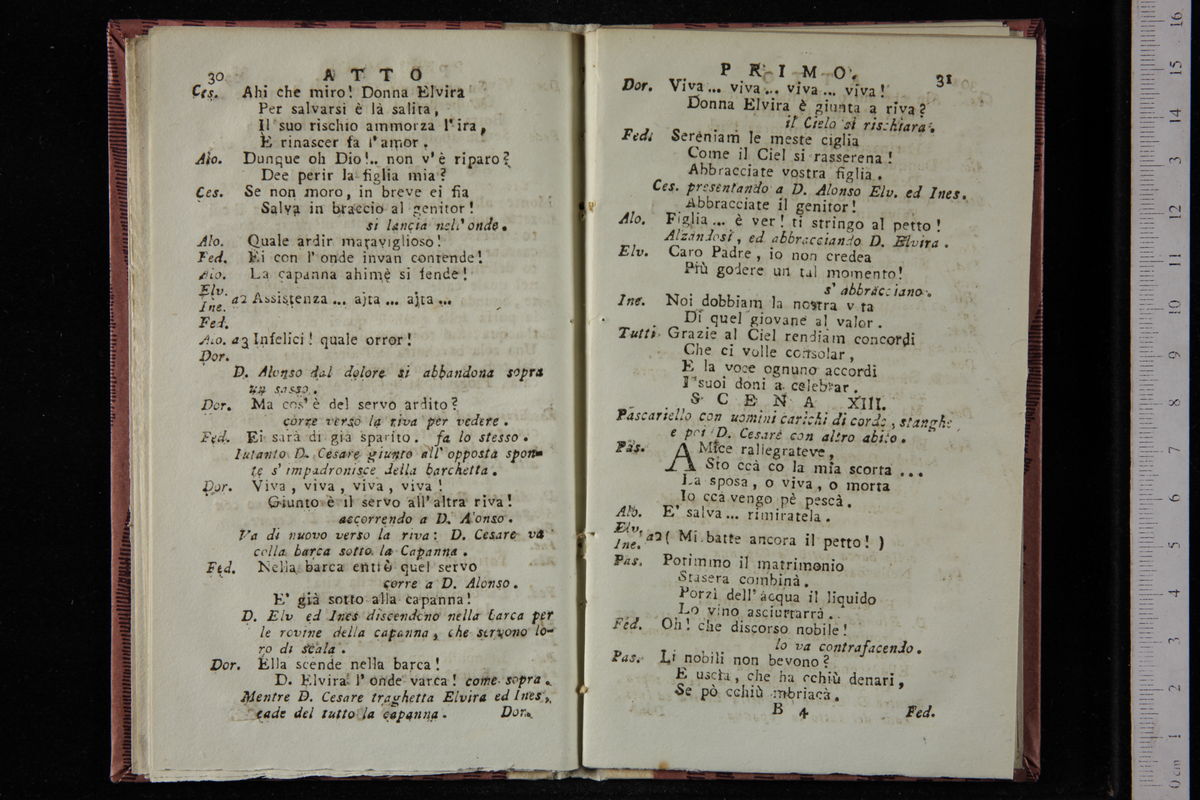 30 ATTO
Ces. Ahi che miro! Donna Elvira
Per salvarsi è là salita,
Il suo rischio ammorza l'ira,
E rinascer fa l'amor.
Alo. Dunque oh Dio!.. non v'è riparo?
Dee perir la figlia mia?
Ces. Se non moro, in breve ei fia
Salva in braccio al genitor!
si lancia nell' onde.
Alo. Quale ardir maraviglioso!
Fed. Ei con l'onde invan contende!
Alo. La capanna ahimè si fende!
Elv.
Ine. a2 Assistenza ... ajta ... ajta ...
Fed.
Alo. a3 Infelici! quale orror!
Dor.
D. Alonso dal dolore si abbandona sopra
un sasso.
Dor. Ma cos' è del servo ardito?
corre verso la riva per vedere.
Fed. Ei sarà di già sparito. fa lo stesso.
Intanto D. Cesare giunto all' opposta spon-
te s' impadronisce della barchetta.
Dor. Viva, viva, viva, viva!
Giunto è il servo all' altra riva!
accorrendo a D. Alonso.
Va di nuovo verso la riva: D. Cesare va
colla barca sotto la Capanna.
Fed. Nella barca entrò quel servo
corre a D. Alonso.
E' già sotto alla capanna!
D. Elv ed Ines discendono nella barca per
le rovine della capanna, che servono lo-
ro di scala.
Dor. Ella scende nella barca!
D. Elvira l' onde varca! come sopra.
Mentre D. Cesare traghetta Elvira ed Ines,
cade del tutto la capanna. Dor.
PRIMO. 31
Dor. Viva... viva... viva... viva!
Donna Elvira è giunta a riva?
il Cielo si rischiara.
Fed. Sereniam le meste ciglia
Come il Ciel si rasserena!
Abbracciate vostra figlia.
Ces. presentando a D. Alonso Elv. ed Ines.
Abbracciate il genitor!
Alo. Figlia... è ver! ti stringo al petto!
Alzandosi, ed abbracciando D. Elvira.
Elv. Caro Padre, io non credea
Più godere un tal momento!
s' abbracciano.
Ine. Noi dobbiam la nostra v ta
Di quel giovane al valor.
Tutti Grazie al Ciel rendiam concordi
Che ci volle consolar,
E la voce ognuno accordi
I suoi doni a celebrar.
SCENA XIII.
Pascariello con uomini carichi di corde, stanghe,
e poi D. Cesare con altro abito.
Pas. AMice rallegrateve,
Sto ccà co la mia scorta ...
La sposa, o viva, o morta
Io ccà vengo pè pescà.
Alo. E' salva... rimiratela.
Elv.
Ine. a2 ( Mi batte ancora il petto! )
Pas. Potimmo il matrimonio
Stasera combinà.
Porzì dell' acqua il liquido
Lo vino asciuttarrà.
Fed. Oh! che discorso nobile!
lo va contrafacendo.
Pas. Li nobili non bevono?
E uscìa, che ha cchiù denari,
Se pò cchiù mbriacà.
B 4 Fed.